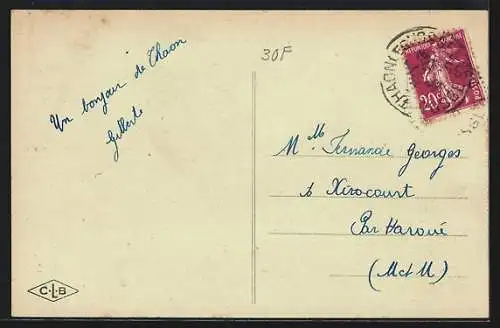 Un bonjour de Thaon
Gilberte
30F
REPUBLIQUE FRANCAISE
20c
POSTES
Mme Fernande Georges
à Xirocourt
Par Haroué
(M et M)
C·L·B